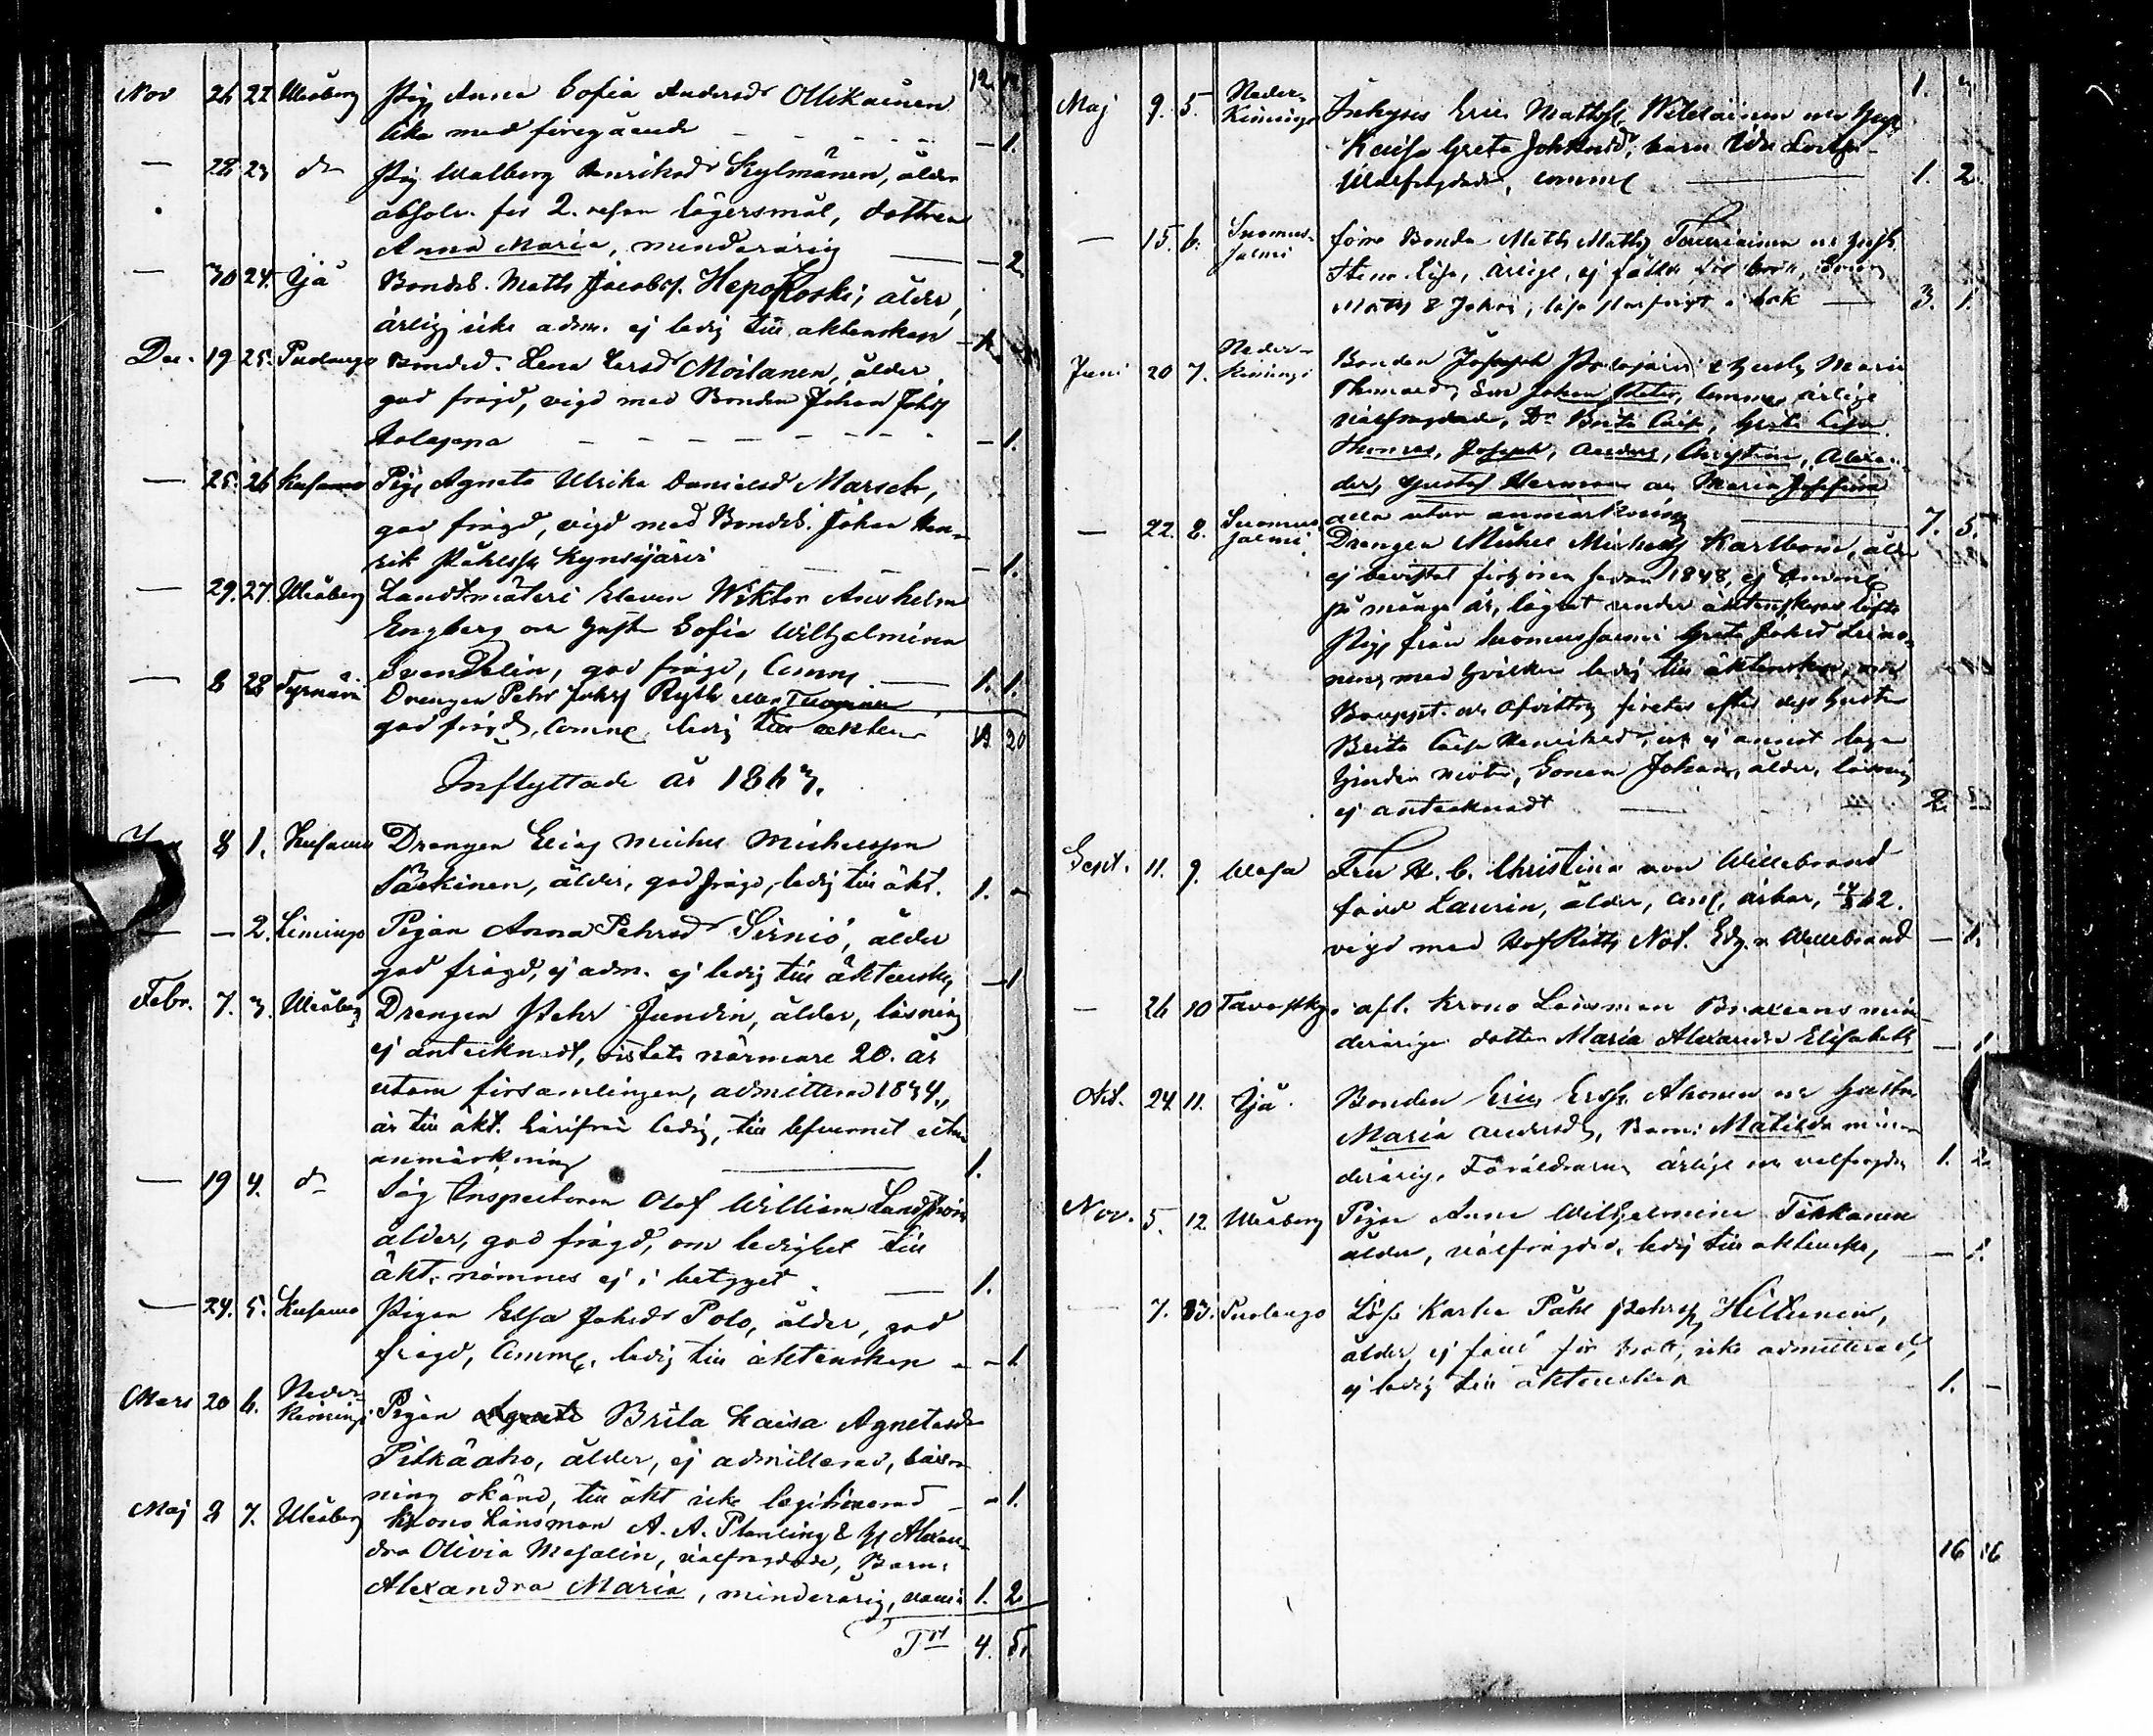 12.
Nov 26 22 Uleåborg Pig. Anna Sofia Andersdr Ollikainen
lika med föregående — 1.
— 28 23 do Pig. Walborg Henriksdr Kylmänen, ålder
absolv. för 2. resan lägersmål, dottren
Anna Maria, minderårig — 2.
— 30 24. Ijå Bondes. Matts Jacobss. Hepokoski, ålder,
ärlig, icke adm. ej ledig till äktenskap
Dec. 19 25. Pudasjo Bonded. Lena Larsdr Moilanen, ålder,
god frägd, vigd med Bonden Johan Johss
Holappa — 1.
— 25. 26 Kusamo Pig. Agneta Ulrika Danielsd Marsch,
god frägd, vigd med Bondes. Johan Hen-
rik Påhlsson Kynsijärvi — 1.
— 29. 27. Uleåborg Landtmäteri Eleven Wiktor Anshelm
Engberg och hustr Sofia Wilhelmina
Svendelin, god frägd, Comm. — 1. 1.
— 8 28 Tyrnävä Drengen Petr Johss Ryth eller Tuominen
god frägd, Comm. ledig till äkten 13 20
Inflyttade år 1863.
8 1. Kusamo Drengen Elias Michel Michelsson
Särkinen, ålder, god frägd, ledig till äkt. 1. -
— — 2. Limingo Pigan Anna Pehrsdr Sirniö, ålder
god frägd, ej adm. ej ledig till äktensk. — 1
Febr. 7. 3. Uleåborg Drengen Pehr Jundin, ålder, läsning
ej antecknadt, vistats närmare 20. år
utom församlingen, admitterad 1834.,
är till äkt. härifrån ledig, till lefvernet utan
anmärkning — 1.
— 19 4. do Såg Inspectoren Olof William Landström
ålder, god frägd, om ledighet till
äkt. nämnes ej i betyget — 1.
— 24. 5. Kusamo Pigan Elsa Johsdr Polo, ålder, god
frägd, Comm. ledig till äktenskap - - 1
Mars 20 6. Neder-
Kiminge Pigan Agneta Brita Kaisa Agnetasdr
Pitkäaho, ålder, ej admitterad, läs-
ning okänd, till äkt icke legitimerad - - 1.
Maj 2 7. Uleåborg Krono Länsman A. A. Planting & H. Alexan-
dra Olivia Mesalin, välfrägdade, Barn:
Alexandra Maria, minderårig, vacc: 1. 2
Trt 4. 5.
1.
Maj 9. 5. Neder-
Kiminge Inhyses Eric Mattss. och
Kaisa Greta Johansd, barn Ida
Wälfrägdade, comm. — 1. 2.
— 15. 6. Suomus-
salmi förre Bonden Matts Matts. Tauriainen och hust.
Stina Lisa, ärlige, ej fällde för brott, Söner
Matts & Johan, läsa försvarligt i bok — 3. 1.
Juni 20 7. Neder-
kiminge Bonden Joseph & hustr. Maria
Thomasd, Son Johan Peter, Comm. ärlige
välfrägdade, Dr Brita Caisa, Greta Lisa
Thomas, Joseph, Anders, Christina, Alexan-
der, Gustaf Herman och Maria Josefina
alla utan anmärkning — 7. 5.
— 22. 8. Suomus
salmi Drengen Michel Michelss Karlbom, ålder
ej bevistat förhören sedan 1848, ej Comm.
på många år, lägrat under äktenskaps löfte
Pig. från Suomussalmi Greta Johsd Leino-
nen, med hvilken ledig till äktenskap, när
Bouppt. och afvittring företes efter dess hustru
Brita Caisa Henriksd, och ej annat laga
hinder möter, Sonen Johan, ålder, läsning
ej antecknadt — 2. —
Sept. 11. 9. Wasa Fru H. C. Christina von Willebrand
född Laurin, ålder, Com., ärbar, 62.
vigd med HofRätts Not. Edv. v. Willebrand — 1.
— 26 10 Tavastkyr. afl. Krono Länsman Braxens min-
derårige dotter Maria Alexandra Elisabeth — 1
Oct. 24. 11. Ijå Bonden Eric Erss. Ahonen och hustru
Maria Andersd, Barn: Matilda min-
derårig, Föräldrarne ärlige och välfrägdade 1. 2.
Nov. 5. 12 Uleåborg Pigan Anna Wilhelmina Tikkanen
ålder, välfrägdad, ledig till äktensk., — 1.
7. 13. Pudasjo Löse Karlen Påhl Pehrss. Hiltunen,
ålder, ej fälld för brott, icke admitterad,
ej ledig till äktenskap 1. -
16 16